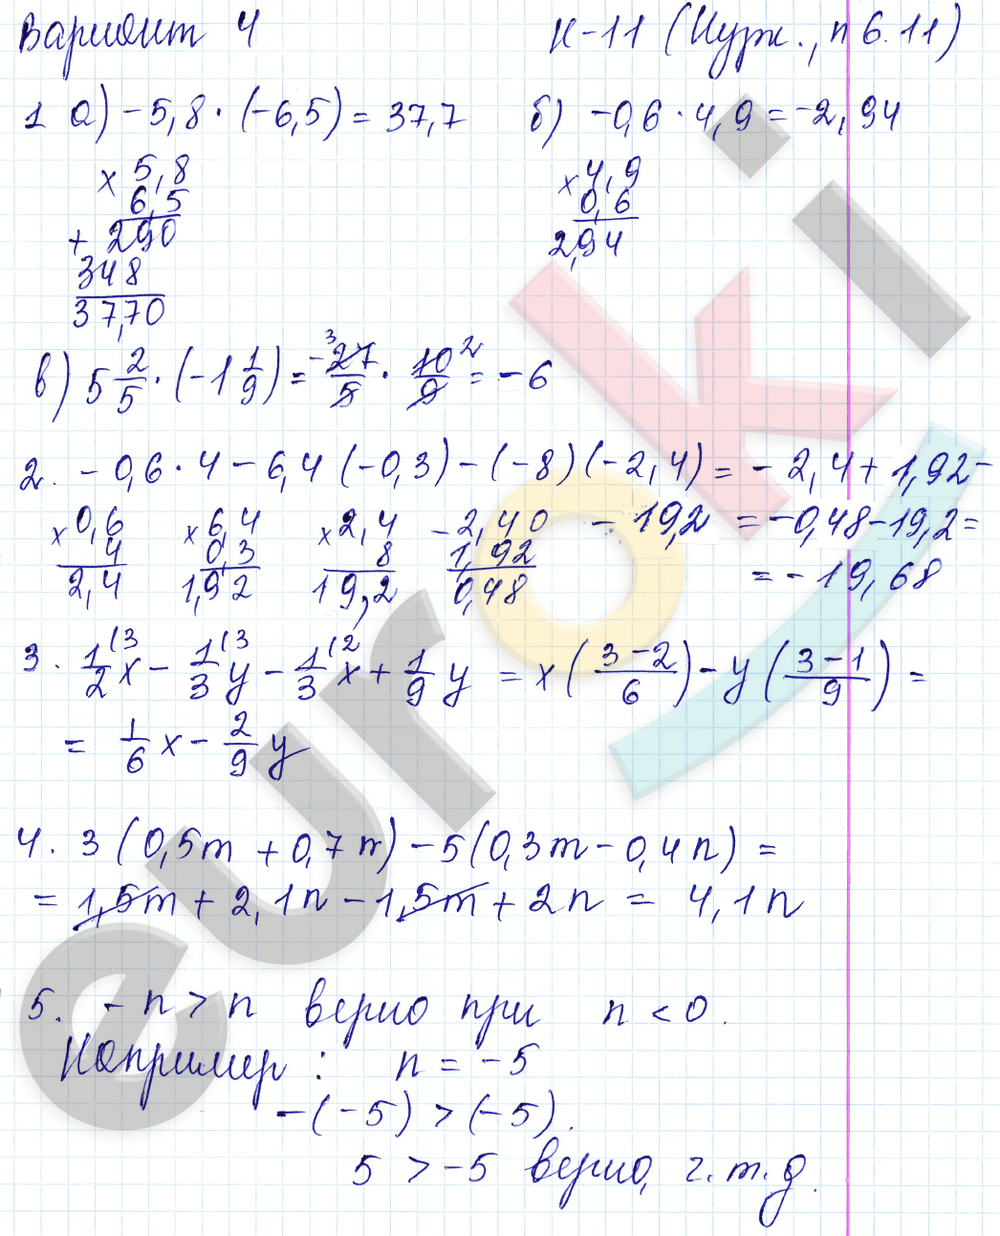 Вариант 4 К-11 (Нурк., п 6.11)
1 а) -5,8 · (-6,5) = 37,7 б) -0,6 · 4,9 = -2,94
× 5,8 × 4,9
6,5 0,6
+ 290 2,94
348
37,70
в) 5 2/5 · (-1 1/9) = - 27/5 · 10/9 = -6
3 2
2. -0,6 · 4 - 6,4 (-0,3) - (-8)(-2,4) = -2,4 + 1,92 -
× 0,6 × 6,4 × 2,4 - 2,40 - 19,2 = -0,48 - 19,2 =
4 0,3 8 1,92
2,4 1,92 19,2 0,48 = -19,68
3. 1/2 (3 x - 1/3 (3 y - 1/3 (2 x + 1/9 y = x ( 3-2/6 ) - y ( 3-1/9 ) =
= 1/6 x - 2/9 y
4. 3 (0,5m + 0,7n) - 5(0,3m - 0,4n) =
= 1,5m + 2,1n - 1,5m + 2n = 4,1n
5. -n > n верно при n < 0.
Например: n = -5
-(-5) > (-5).
5 > -5 верно, ч.т.д.
euroki